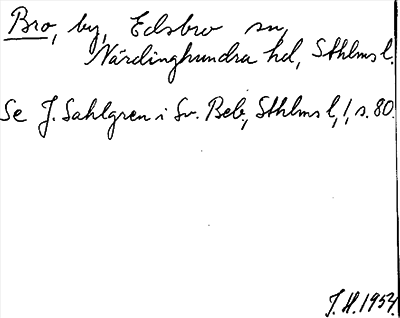 Bro, by, Edsbro sn,
Närdinghundra hd, Sthlms l.
Se J. Sahlgren i Sv. Beb., Sthlms l, 1, s. 80.
J. H. 1954.